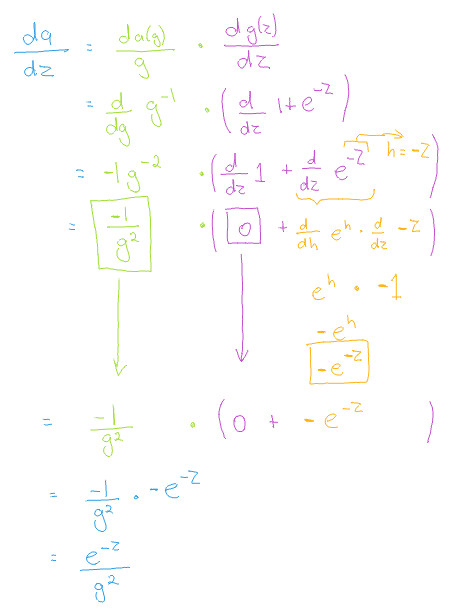 da/dz = da(g)/g · dg(z)/dz
= d/dg g⁻¹ · (d/dz 1+e⁻ᶻ)
= -1g⁻² · (d/dz 1 + d/dz e⁻ᶻ) h=-z
= -1/g² · (0 + d/dh eʰ · d/dz -z)
eʰ · -1
-eʰ
-e⁻ᶻ
= -1/g² · (0 + -e⁻ᶻ)
= -1/g² · -e⁻ᶻ
= e⁻ᶻ/g²